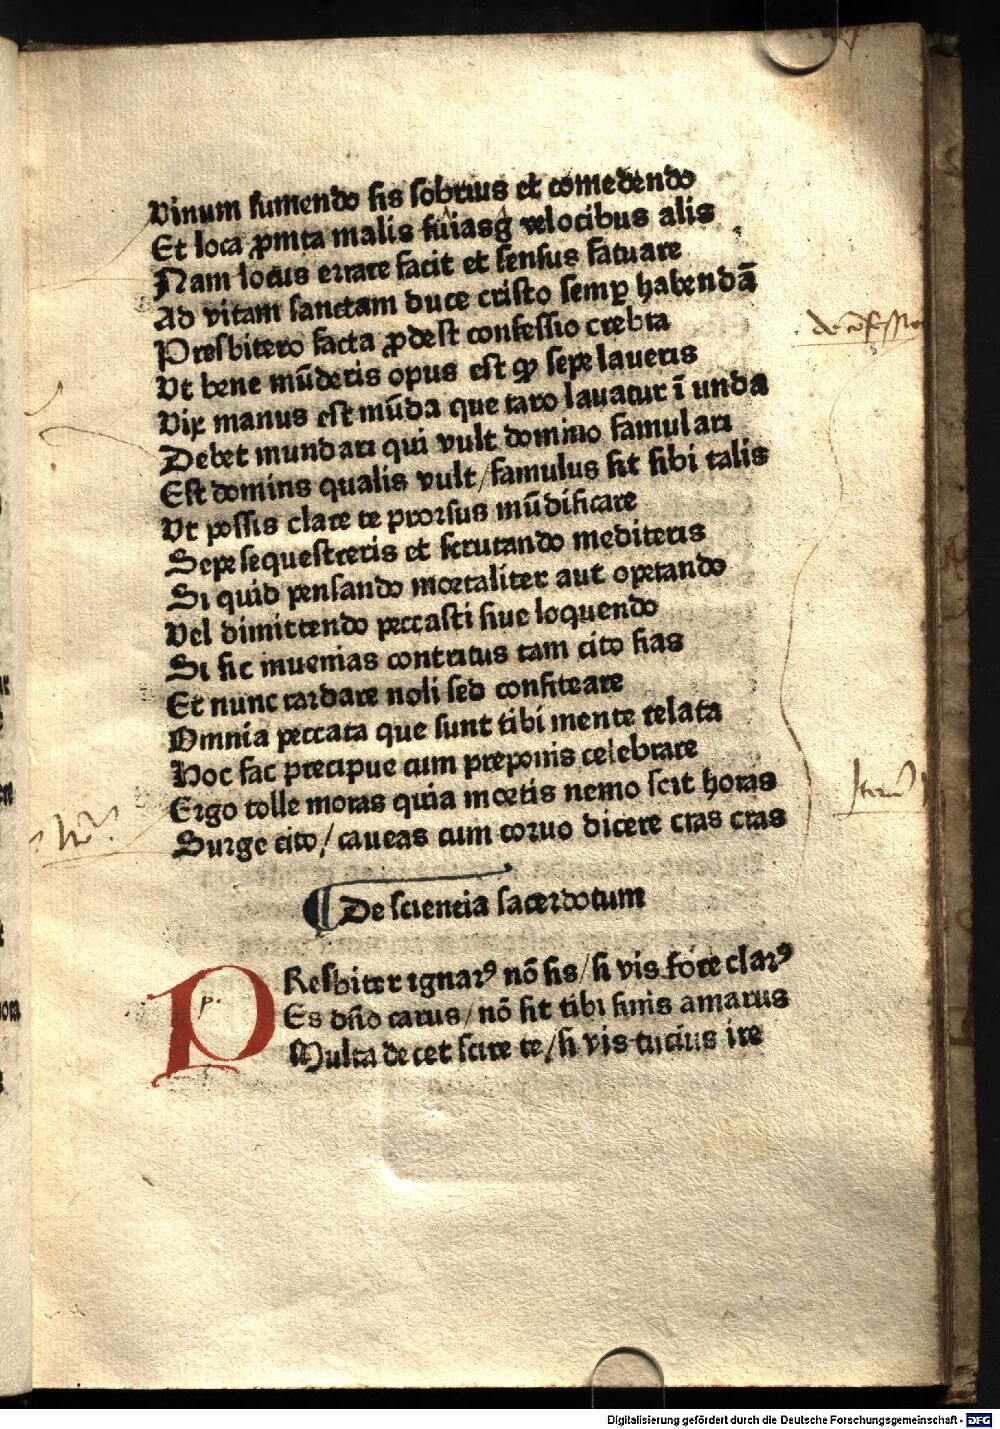 Vinum sumendo sis sobrius et comedendo
Et loca ꝓmta malis fũiasq velocibus alis
Nam locus errare facit et sensus fatuare
Ad vitam sanctam duce cristo semꝑ habendā
Presbitero facta ꝓdest confessio crebra
Vt bene mūderis opus est ꝙ sepe laueris
Vix manus est mūda que raro lauatur ī unda
Debet mundari qui vult domino famulari
Est domins qualis vult/famulus sit sibi talis
Vt possis clare te prorsus mūdificare
Sepe sequestreris et scrutando mediteris
Si quid pensando mortaliter aut operando
Vel dimittendo peccasti siue loquendo
Si sic inuenias contritus tam cito fias
Et nunc tardare noli sed confiteare
Omnia peccata que sunt tibi mente relata
Hoc fac precipue cum preponis celebrare
Ergo tolle moras quia mortis nemo scit horas
Surge cito/ caueas cum coruo dicere cras cras
¶ De sciencia sacerdotum
PResbiter ignarꝰ nō sis/si vis fore clarꝰ
p.
Es dño carus/nō sit tibi finis amarus
Multa decet scire te/si vis tucius ire
de cōfessio
Digitalisierung gefördert durch die Deutsche Forschungsgemeinschaft - DFG